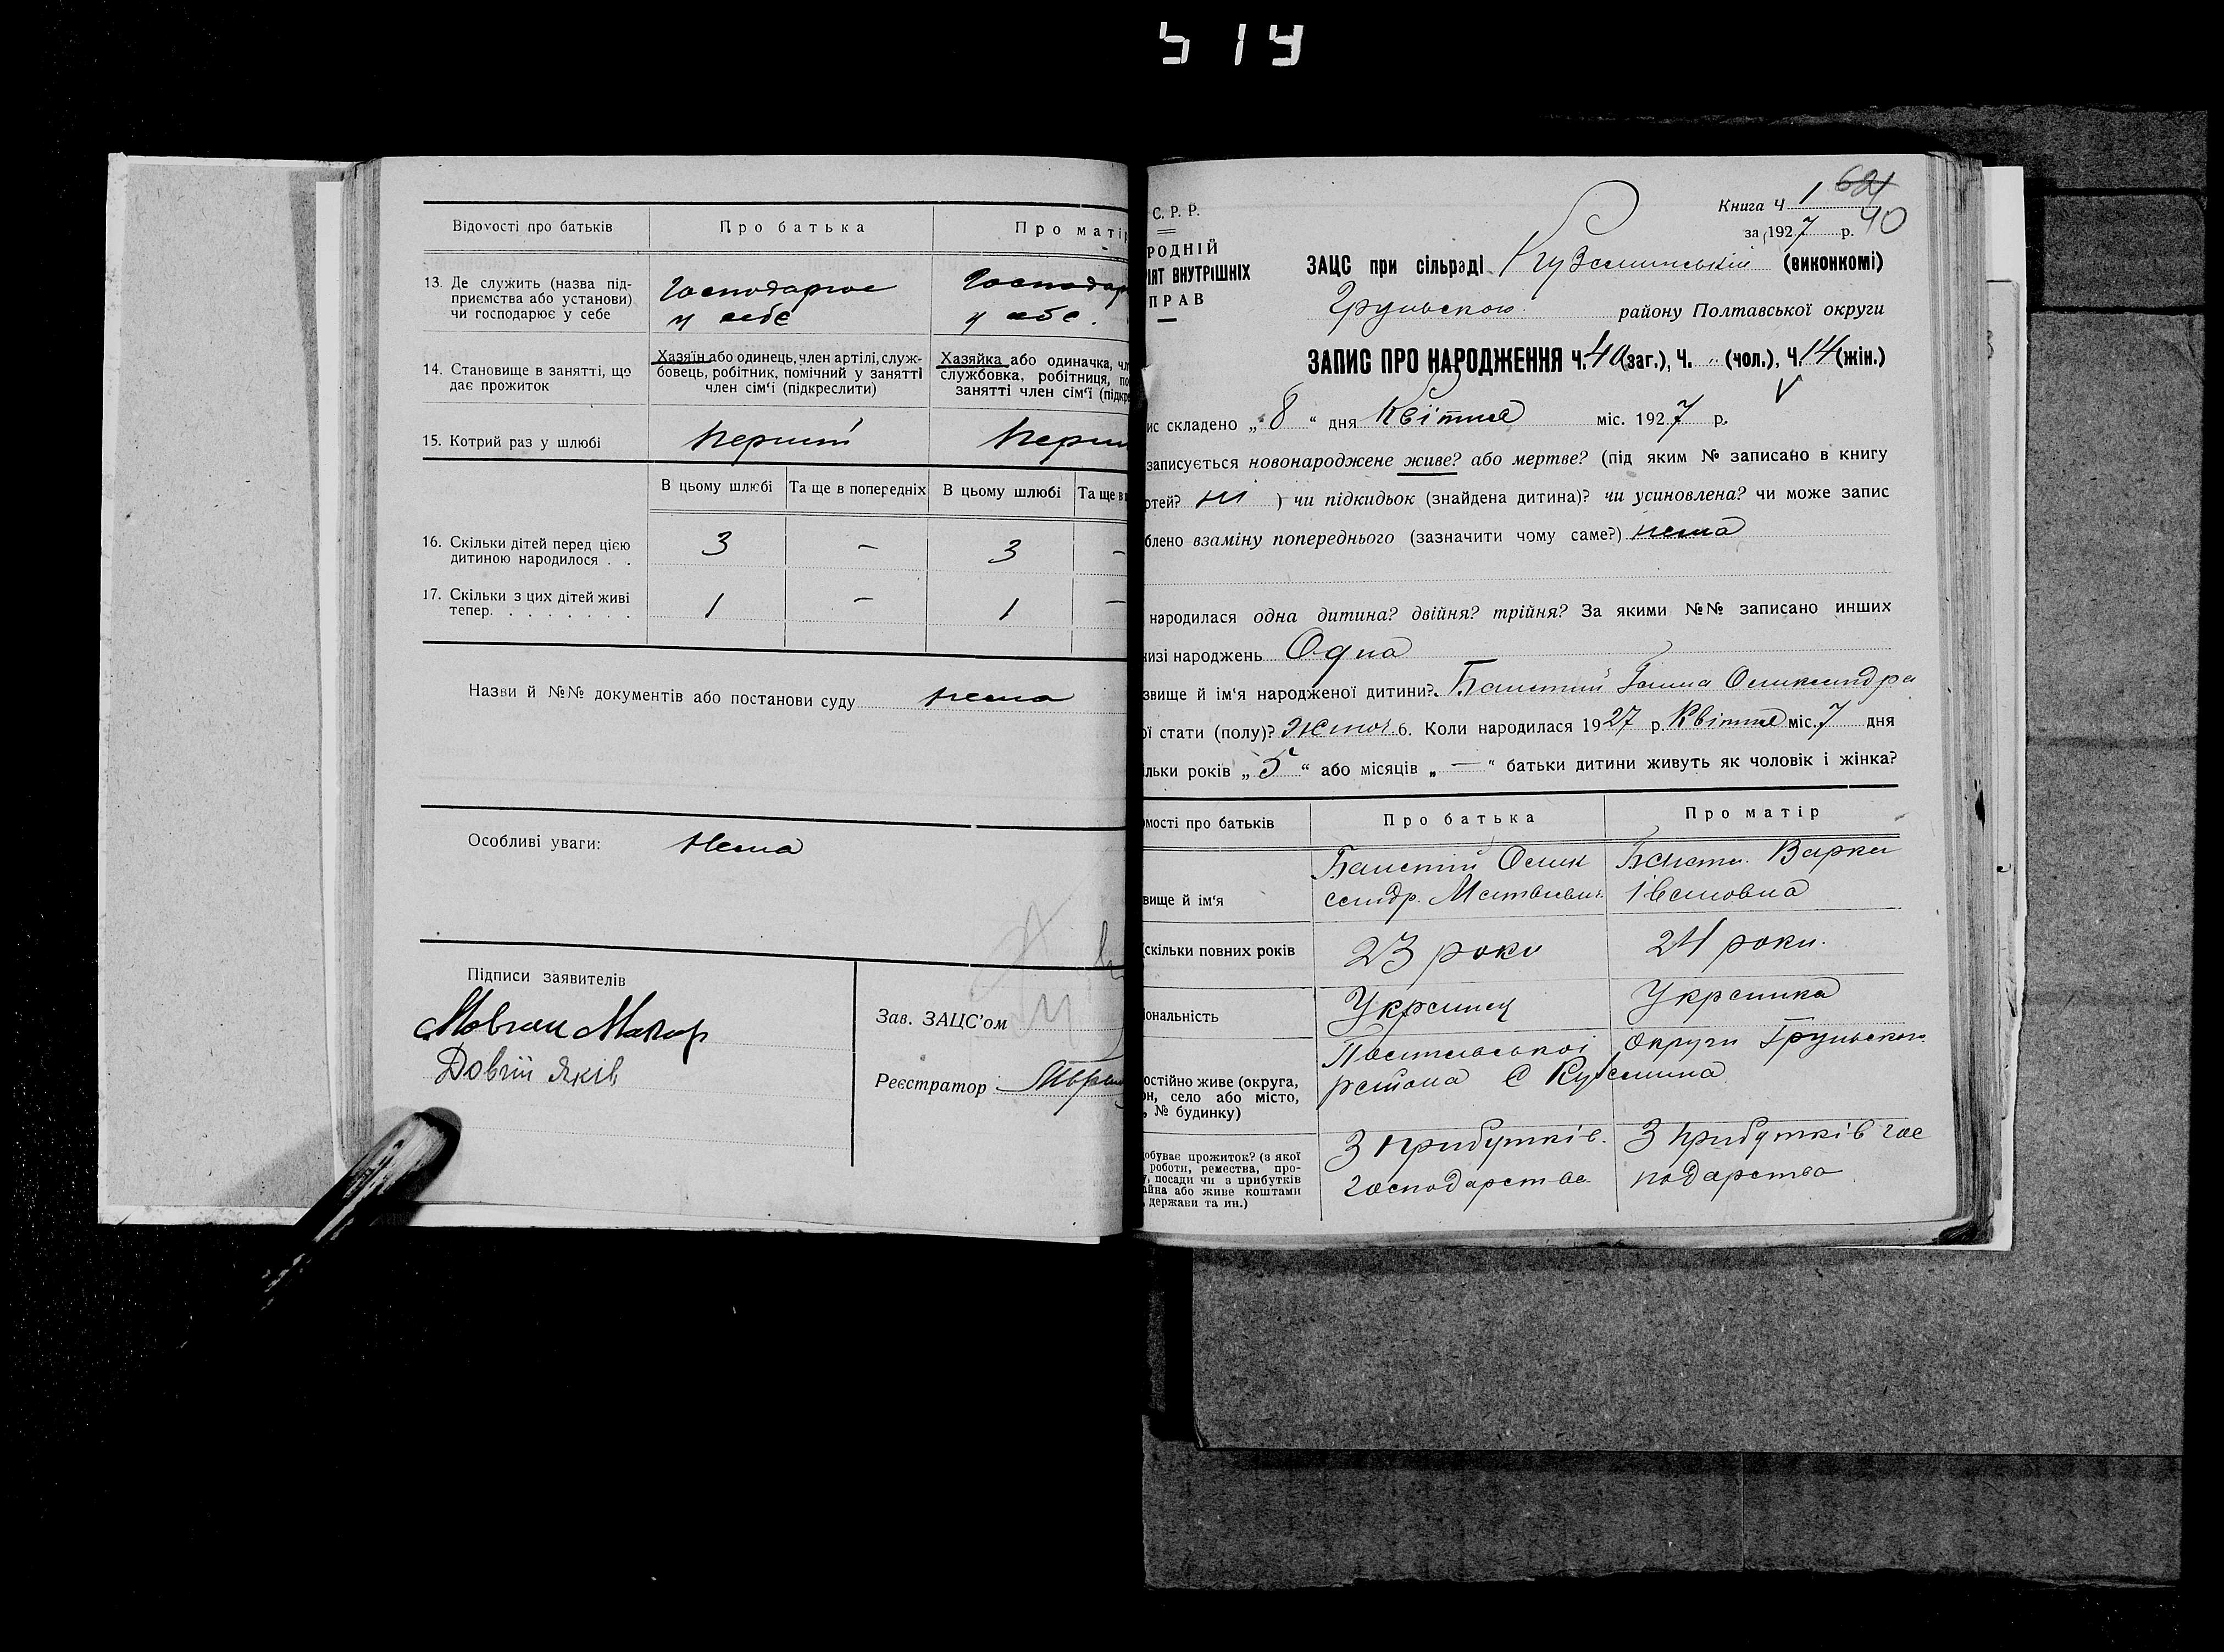 514
Відомості про батьків
Про батька
Про матір
13. Де служить (назва під-
приємства або установи)
чи господарює у себе
Господарює
у себе
Господар
у себе.
14. Становище в занятті, що
дає прожиток
Хазяїн або одинець, член артілі, служ-
бовець, робітник, помічний у занятті
член сім'ї (підкреслити)
Хазяйка або одиначка, чл
службовка, робітниця, по
занятті член сім'ї (підкре
15. Котрий раз у шлюбі
перший
перш
В цьому шлюбі
Та ще в попередніх
В цьому шлюбі
Та ще в
16. Скільки дітей перед цією
дитиною народилося . .
3 – 3 –
17. Скільки з цих дітей живі
тепер. . . . . . . .
1 – 1 –
Назви й №№ документів або постанови суду нема
Особливі уваги: Нема
Підписи заявителів
Мовчан Макар
Довгій Яків
Зав. ЗАЦС'ом
Реєстратор
С. Р. Р.
РОДНІЙ
ІЯТ ВНУТРІШНІХ
ПРАВ
Книга Ч 1 621
за 1927 р. 40
ЗАЦС при сільраді Куземинській (виконкомі)
Груньского району Полтавської округи
ЗАПИС ПРО НАРОДЖЕННЯ Ч. 40 (заг.), Ч. „ (чол.), Ч. 14 (жін.)
ис складено „ 8 “ дня Квітня міс. 1927 р.
записується новонароджене живе? або мертве? (під яким № записано в книгу
ртей? ні ) чи підкидьок (знайдена дитина)? чи усиновлена? чи може запис
блено взаміну попереднього (зазначити чому саме?) нема
народилася одна дитина? двійня? трійня? За якими №№ записано инших
низі народжень Одна
звище й ім'я народженої дитини? Ганна Олександра
ої стати (полу)? жіноч. 6. Коли народилася 1927 р. Квітня міс. 7 дня
ільки років „ 5 “ або місяців „ — “ батьки дитини живуть як чоловік і жінка?
омості про батьків
Про батька
Про матір
вище й ім'я
Олек
сандр. Матвієвич.
Варка
Івановна
скільки повних років
23 роки
24 роки.
іональність
Українец
Українка
остійно живе (округа,
он, село або місто,
, № будинку)
Полтавської округи Груньского
района С Куземина
обуває прожиток? (з якої
роботи, ремества, про-
у, посади чи з прибутків
айна або живе коштами
, держави та ин.)
З прибутків.
господарства
З прибутків гос
подарства